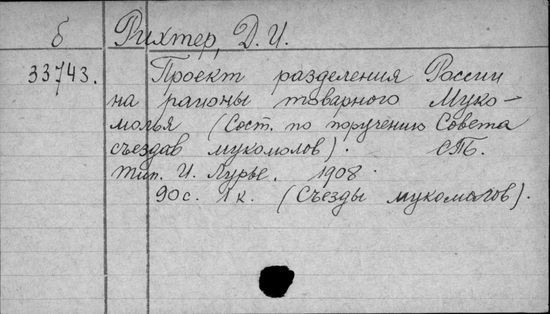 б Рихтер, Д. И.
33743. Проект разделения России
на районы товарного муко-
молья (Сост. по поручению Совета
съездав мукомолов). СПб.
тип. И. Лурье. 1908.
90 с. 1 к. (Съезды мукомолов).